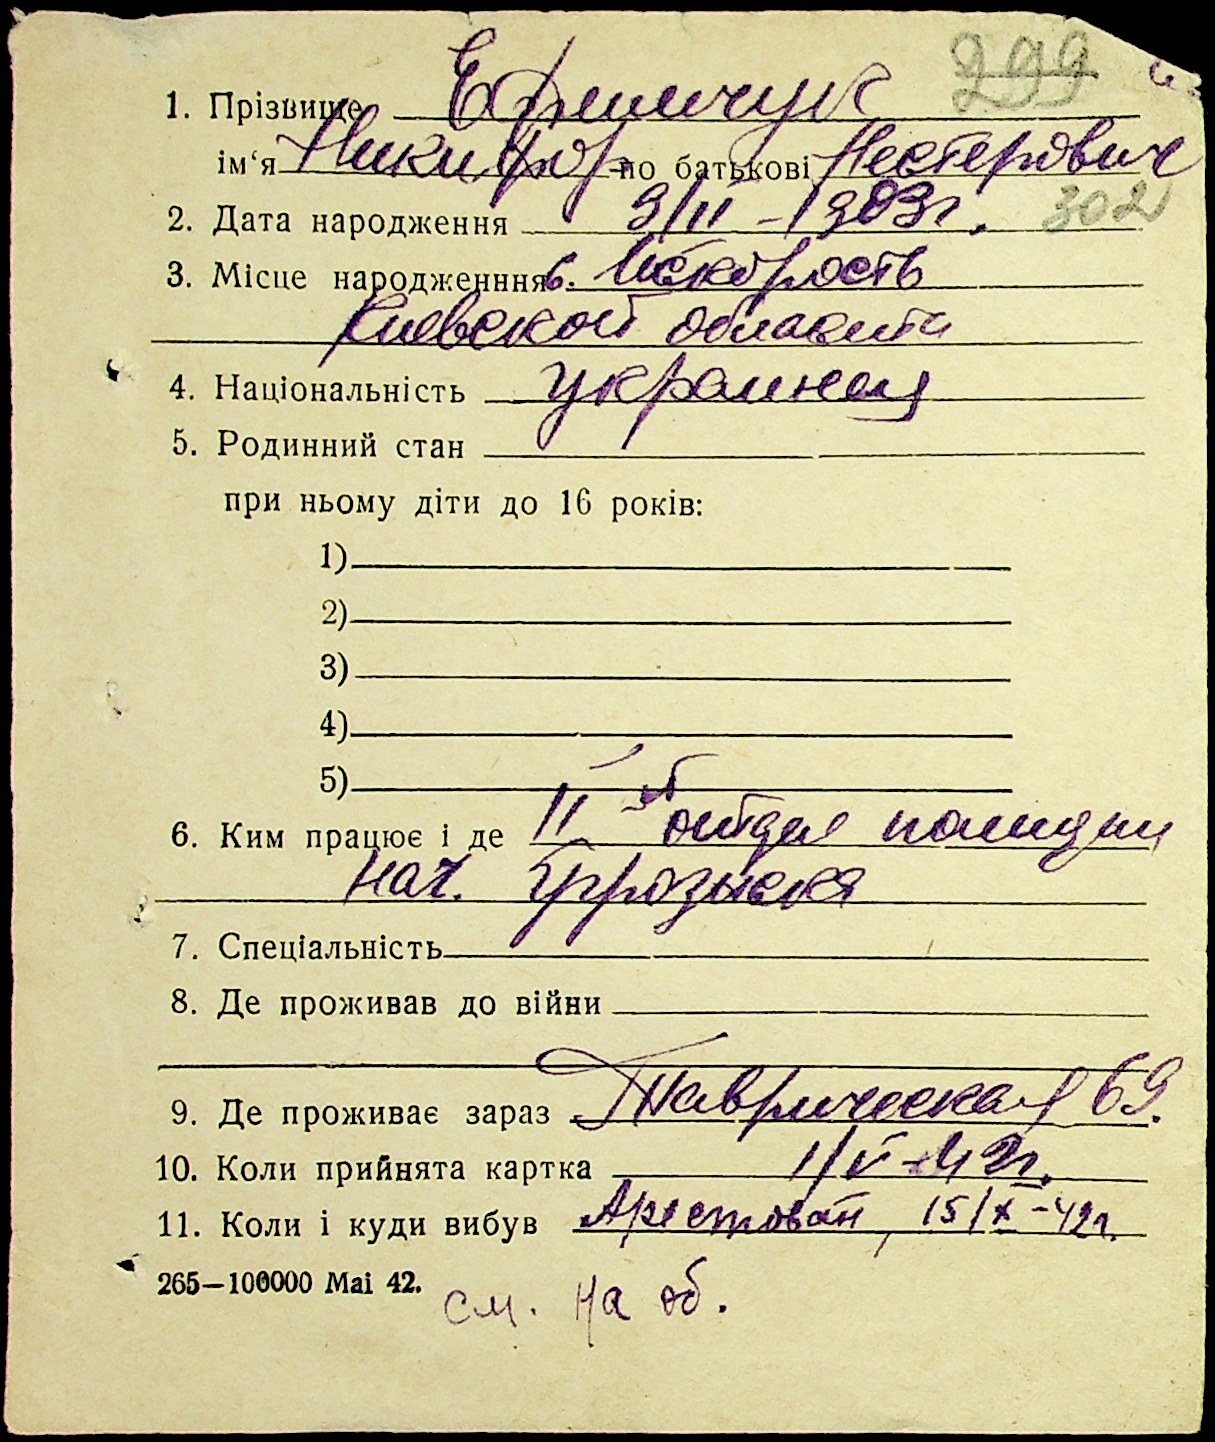 299
1. Прізвище Ефимчук
ім‘я Никифор по батькові Нестерович
2. Дата народження 9/II – 1903г. 302
3. Місце народженння в. Искорость
Киевской области
4. Національність украинец
5. Родинний стан
при ньому діти до 16 років:
1)
2)
3)
4)
5)
6. Ким працює і де II отдел полиции
нач. Угрозыска
7. Спеціальність
8. Де проживав до війни
9. Де проживає зараз Таврическая 69.
10. Коли прийнята картка 1/V – 42г.
11. Коли і куди вибув Арестован, 15/X – 42г.
265—100000 Mai 42.
см. на об.